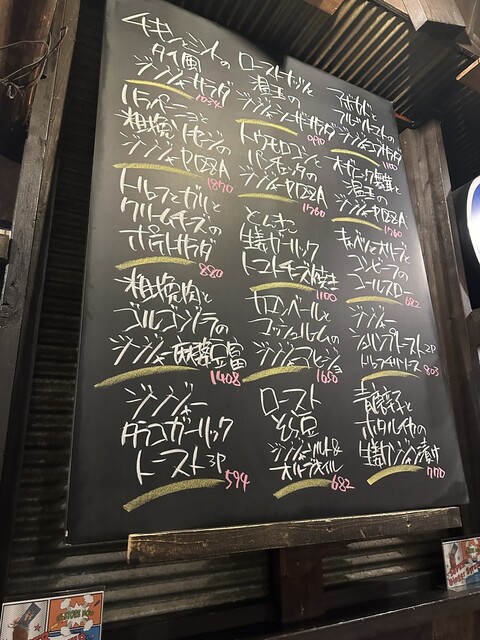 チキンとミントの
タイ風
ジンジャーサラダ
1034
ハラペーニョと
粗挽ソーセージの
ジンジャーPIZZA
1870
トリュフとガリと
クリームチーズの
ポテトサラダ
880
粗挽肉と
ゴルゴンゾーラの
ジンジャー麻婆豆腐
1408
ジンジャー
タラコガーリック
トースト3P
594
ローストナッツと
温玉の
ジンジャーシーザーサラダ
トウモロコシと
パンチェッタの
ジンジャーPIZZA
1760
とんき
生姜ガーリック
トマトチーズ焼き
1100
カマンベールと
マッシュルームの
ジンジャーアヒージョ
1650
ロースト
そら豆
ジンジャーソルト&
オリーブオイル
682
アボカドと
フルーツトマトの
ジンジャーコブサラダ
1100
オーガニック舞茸と
温玉の
ジンジャーPIZZA
1760
キャベツとオリーブと
コンビーフの
コールスロー
682
ジンジャー
シュリンプトースト2P
803
青唐辛子と
ホタルイカの
生姜漬け
770